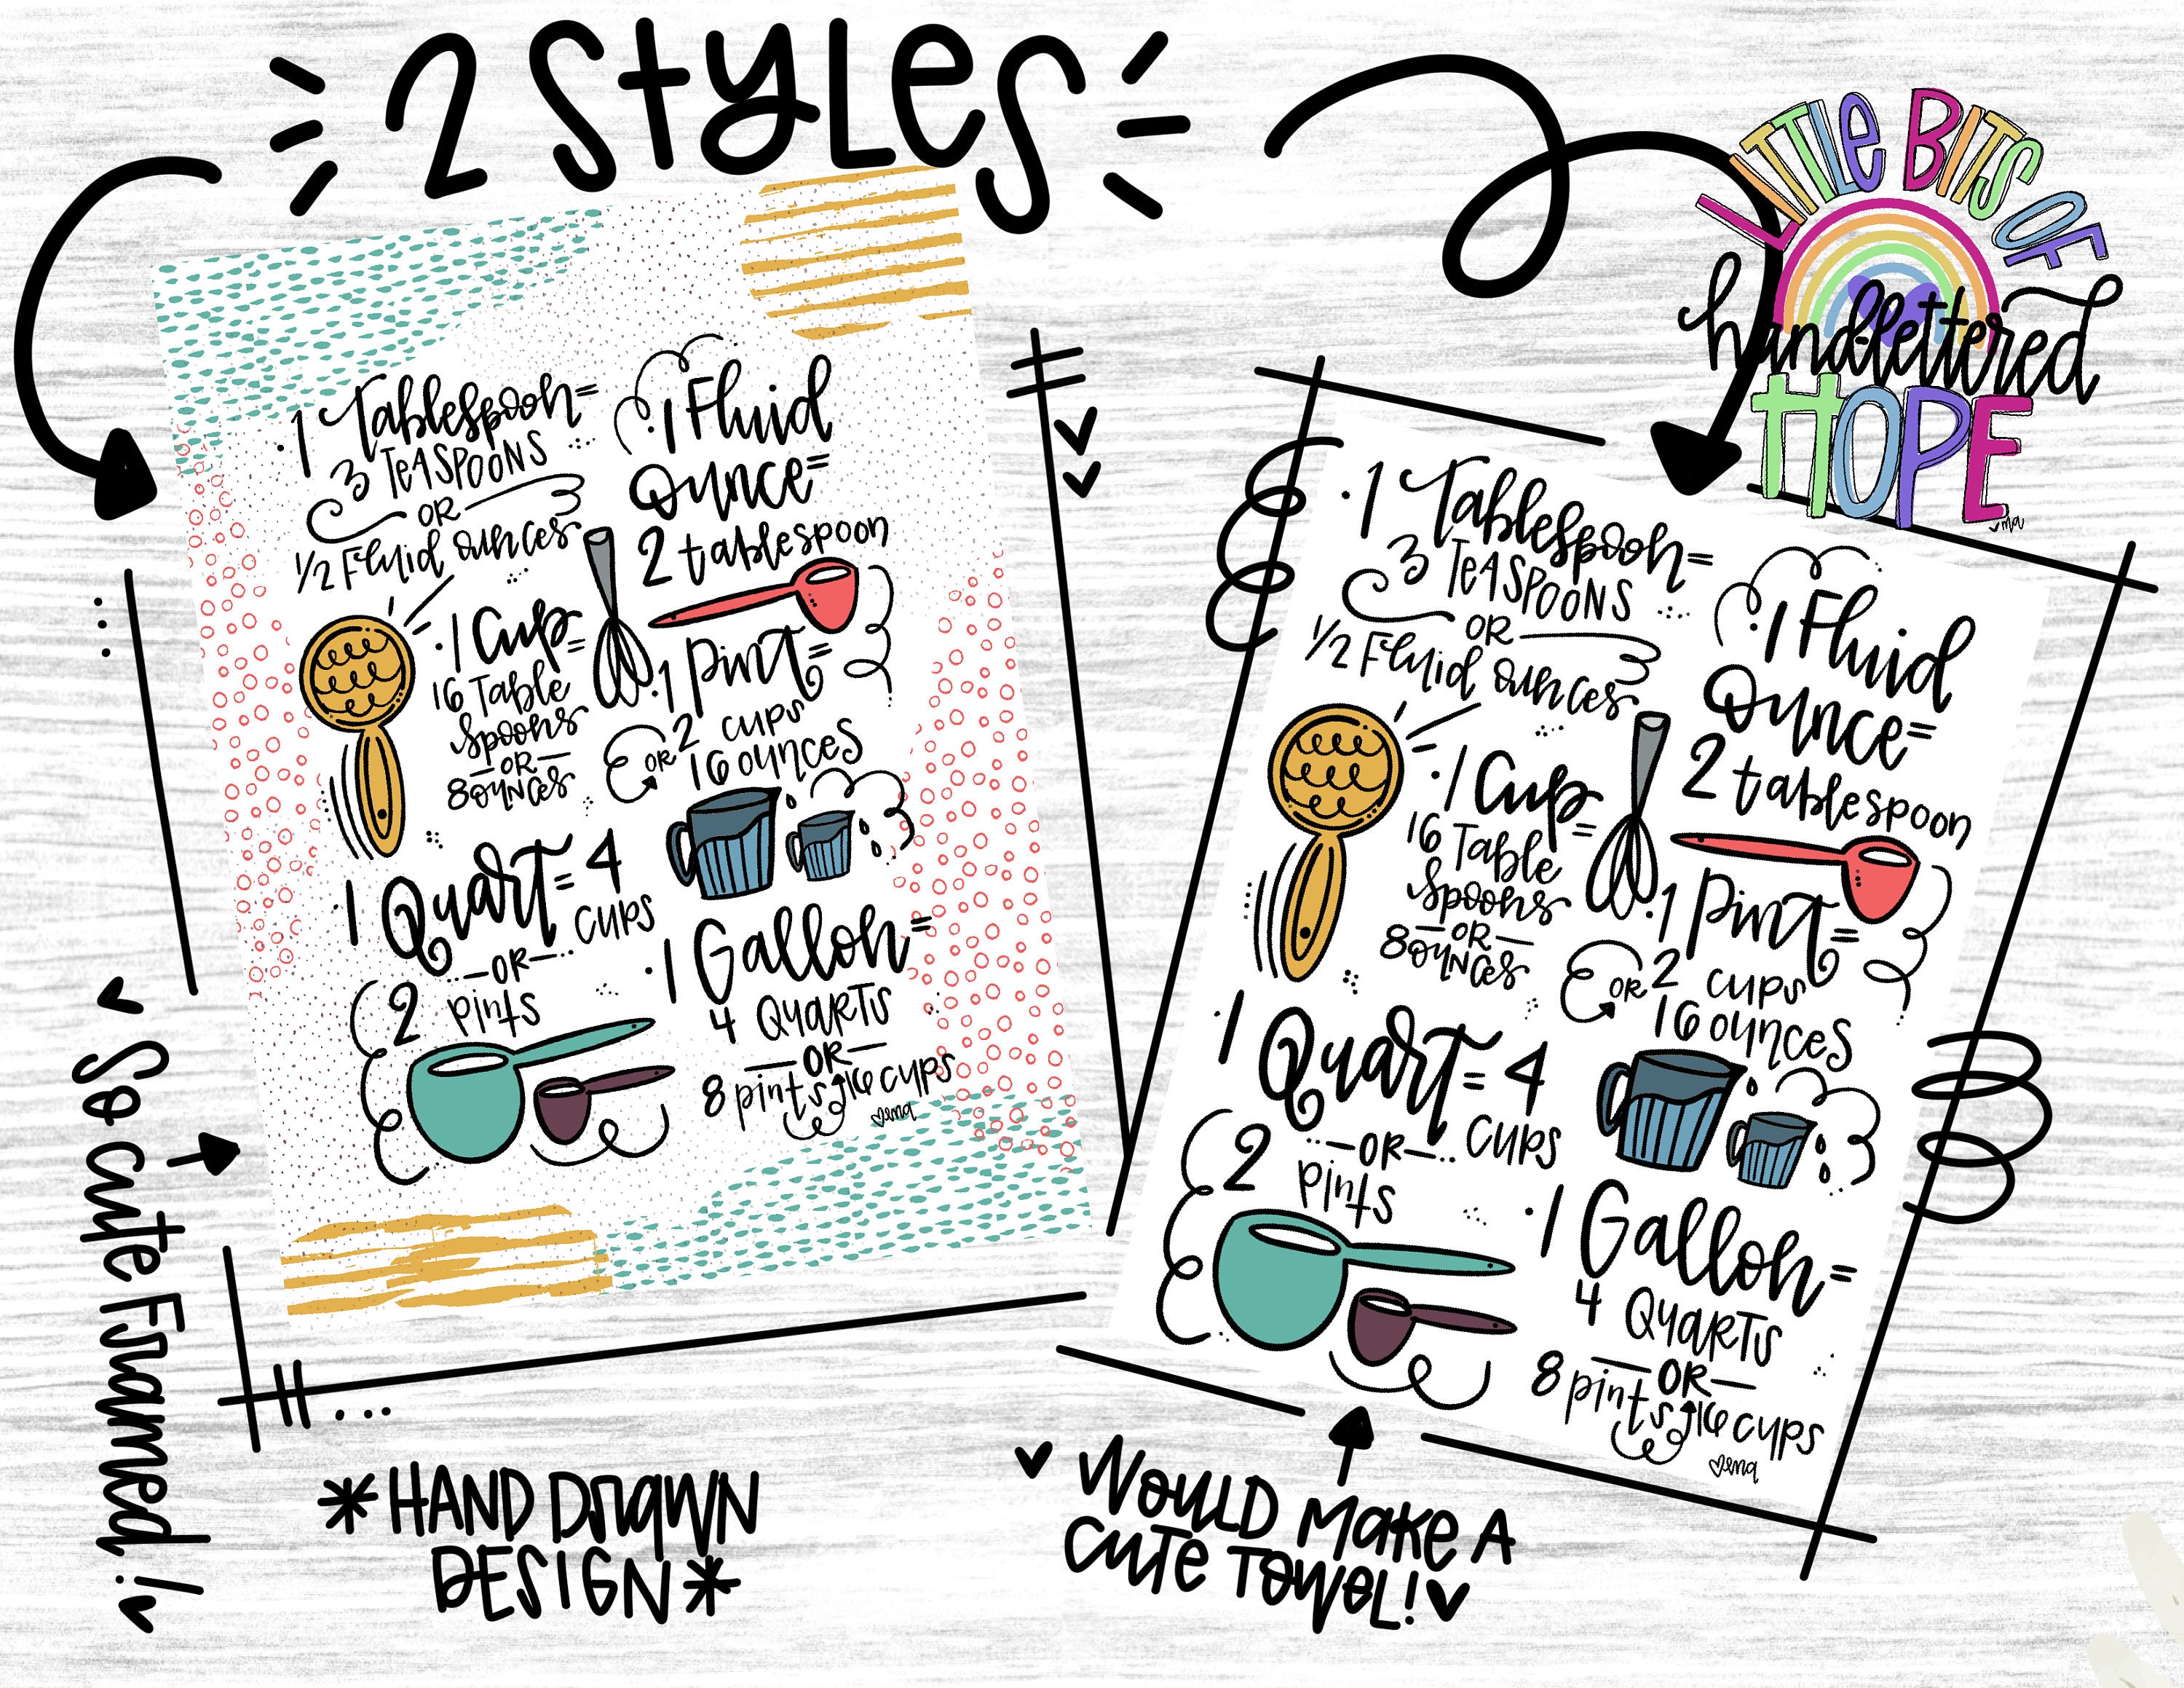 2 Styles
LITTLE BITS OF
handlettered
HOPE
·1 Tablespoon=
3 TEASPOONS
OR
1/2 Fluid ounces
·1 Fluid
Ounce=
2 tablespoon
·1 Cup=
16 Table
spoons
—OR—
8 OUNCES
·1 Pint=
2 cups
OR
16 ounces
1 Quart= 4
cups
—OR—
2 pints
·1 Gallon=
4 QUARTS
—OR—
8 pints 16 cups
ena
·1 Tablespoon=
3 TEASPOONS
OR
1/2 Fluid ounces
·1 Fluid
Ounce=
2 tablespoon
·1 Cup=
16 Table
spoons
—OR—
8 OUNCES
·1 Pint=
2 cups
OR
16 ounces
1 Quart= 4
cups
—OR—
2 pints
·1 Gallon=
4 QUARTS
—OR—
8 pints 16 cups
ena
So cute Framed!
*HAND DRAWN
DESIGN*
WOULD MAKE A
CUTE TOWEL!